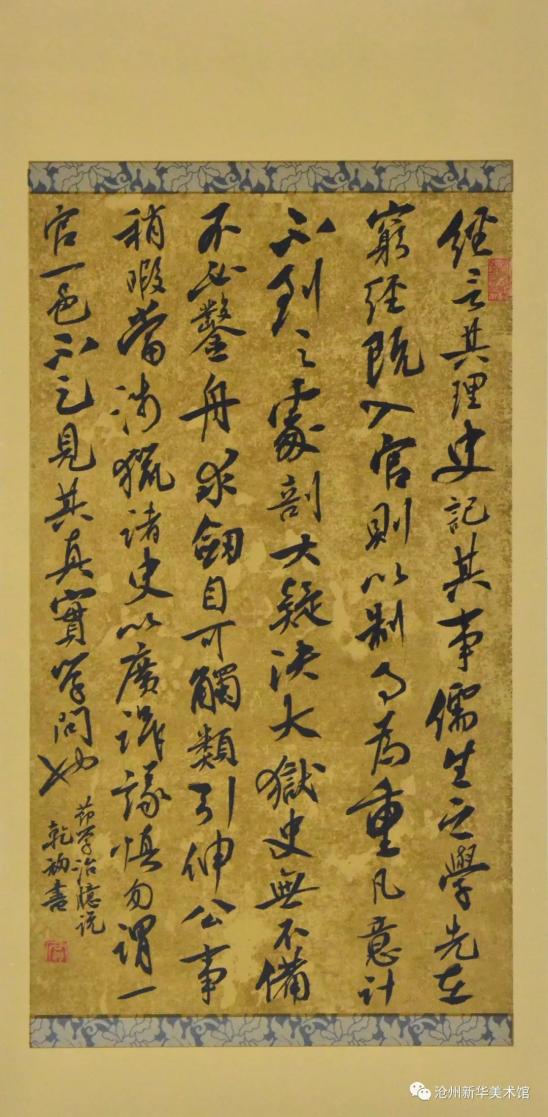 經言其理史記其事儒生之學先在
窮經既入官則以制事為重凡意計
不到之處剖大疑決大獄史無不備
不必鑿舟求劍自可觸類引伸公事
稍暇當涉獵諸史以廣識議慎勿謂一
官一邑不足見其真實學問也
節學治臆说
乾 書
沧州新华美术馆